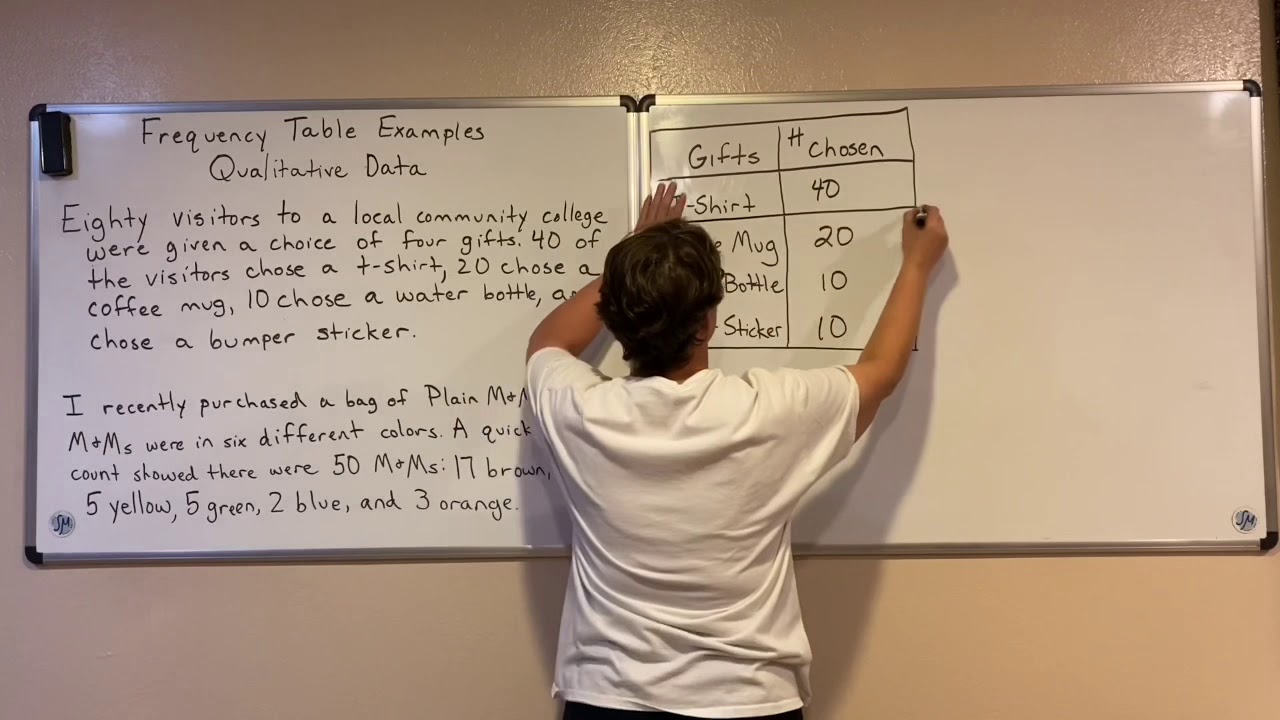 Frequency Table Examples
Qualitative Data
Eighty visitors to a local community college
were given a choice of four gifts. 40 of
the visitors chose a t-shirt, 20 chose a
coffee mug, 10 chose a water bottle,
chose a bumper sticker.
I recently purchased a bag of Plain
M&Ms were in six different colors. A quick
count showed there were 50 M&Ms: 17 brown,
5 yellow, 5 green, 2 blue, and 3 orange.
SM
Gifts # Chosen
-Shirt 40
Mug 20
Bottle 10
Sticker 10
SM